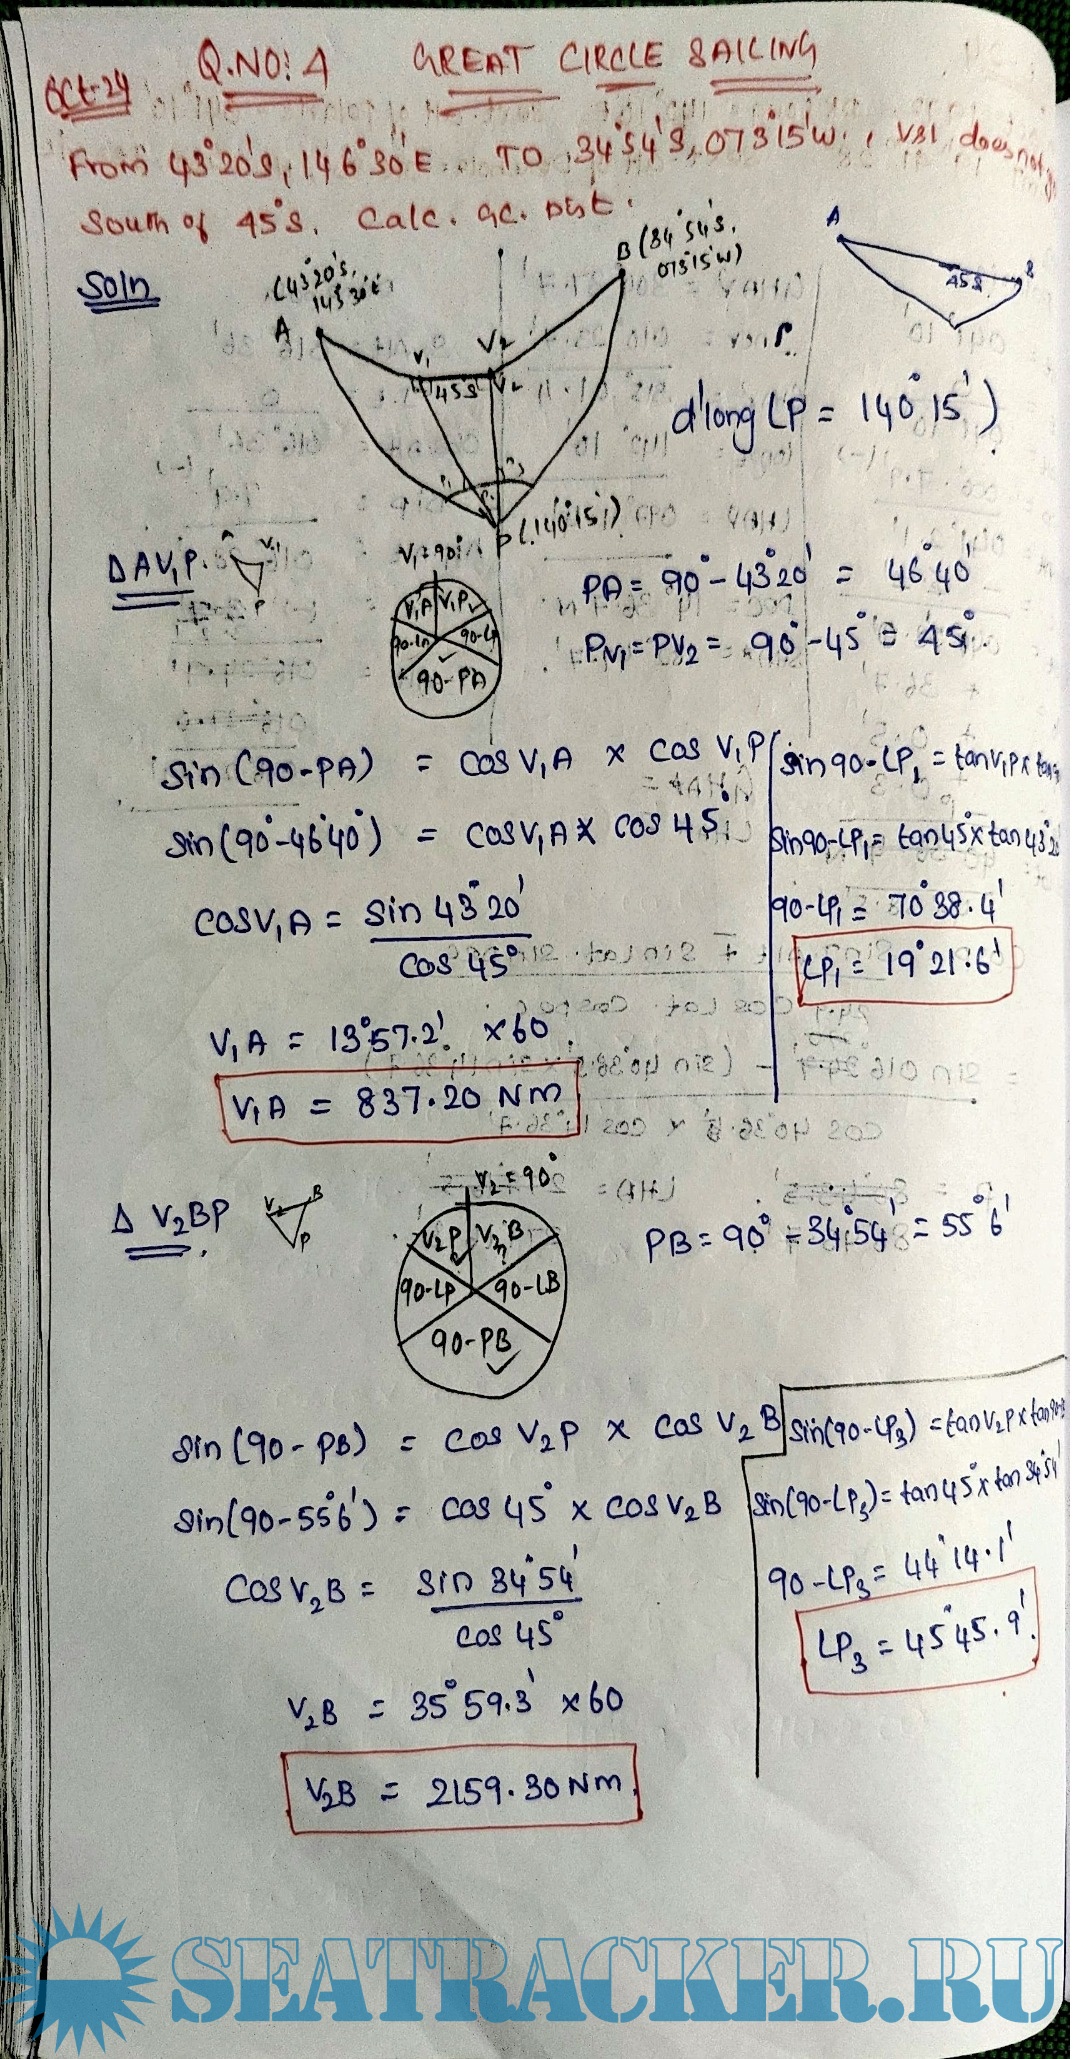 Oct-24
Q.NO: 4 GREAT CIRCLE SAILING
From 43°20'S, 146°30'E TO 34°54'S, 073°15'W, Vsl does not
South of 45°S. Calc. GC. Dist.
Soln
(43°20'S, 
A
V₁
V₂
45S
V₂
B (34°54'S, 
073°15'W)
P (140°15')
A
45S
B
d'long LP = 140°15')
Δ AV₁P.
P
V₁=90°
V₁A V₁P
90-LP
90-PA
PA = 90° - 43°20' = 46°40'
PV₁ = PV₂ = 90° - 45° = 45°
sin (90-PA) = cos V₁A x cos V₁P
sin (90°-46°40') = cos V₁A x cos 45°
cos V₁A = sin 43°20'
cos 45°
V₁A = 13°57.2' x 60
V₁A = 837.20 NM
sin 90-LP₁ = tan V₁P x tan
sin 90-LP₁ = tan 45° x tan 43°
90-LP₁ = 70°38.4'
LP₁ = 19°21.6'
Δ V₂BP
V₂ B
P
V₂ = 90°
V₂P V₂B
90-LP 90-LB
90-PB
PB = 90° - 34°54' = 55°6'
sin (90-PB) = cos V₂P x cos V₂B
sin (90-55°6') = cos 45° x cos V₂B
cos V₂B = sin 34°54'
cos 45°
V₂B = 35°59.3' x 60
V₂B = 2159.30 NM
sin (90-LP₃) = tan V₂P x tan
sin (90-LP₃) = tan 45° x tan 34°54'
90-LP₃ = 44°14.1'
LP₃ = 45°45.9'
SEATRACKER.RU